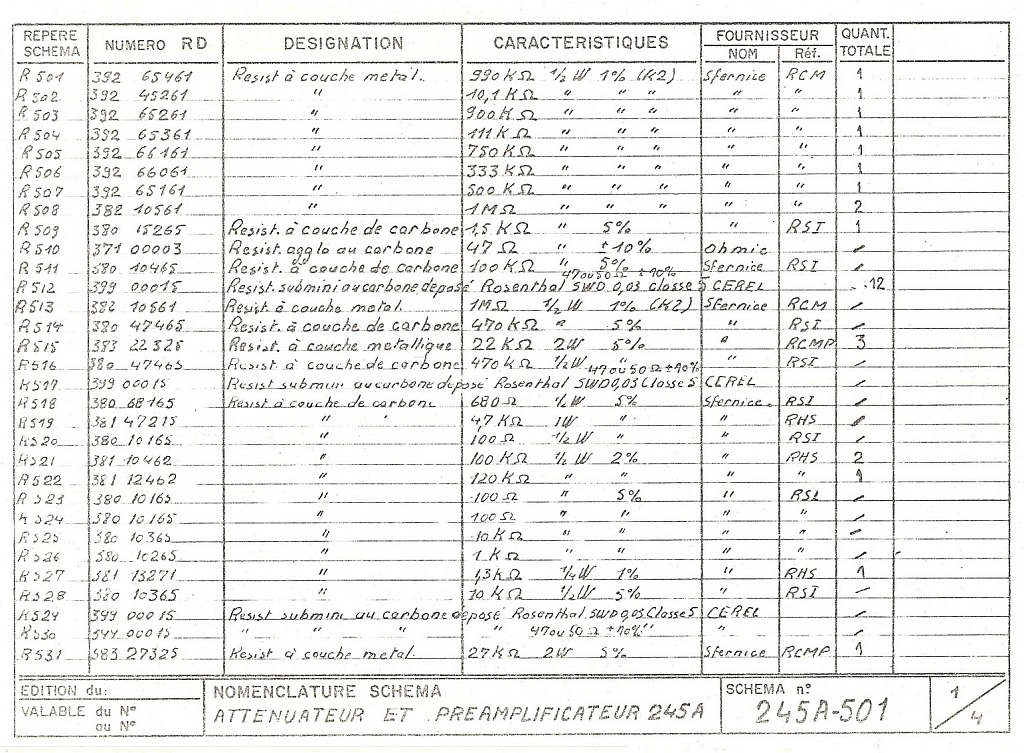 REPERE SCHEMA NUMERO RD DESIGNATION CARACTERISTIQUES FOURNISSEUR NOM Réf. QUANT. TOTALE
R 501 392 65461 Resist à couche metal. 990 KΩ 1/2 W 1% (K2) Sfernice RCM 1
R 502 392 45261 " 10,1 KΩ " " " " " 1
R 503 392 65261 " 900 KΩ " " " " " 1
R 504 392 65361 " 111 KΩ " " " " " 1
R 505 392 66161 " 750 KΩ " " " " " 1
R 506 392 66061 " 333 KΩ " " " " " 1
R 507 392 65161 " 500 KΩ " " " " " 1
R 508 382 10561 " 1 MΩ " " " " " 2
R 509 380 15265 Resist à couche de carbone 1,5 KΩ " 5% " RSI 1
R 510 371 00003 Resist. agglo au carbone 47 Ω " ±10% Ohmic /
R 511 380 10465 Resist. à couche de carbone 100 KΩ " 5% Sfernice RSI /
R 512 399 00015 Resist. submini au carbone deposé Rosenthal SWD 0,03 Classe 5 47 ou 50 Ω ±10% CEREL 12
R 513 382 10561 Resist. à couche metal. 1MΩ 1/2 W 1% (K2) Sfernice RCM /
R 514 380 47465 Resist. à couche de carbone 470 KΩ " 5% " RSI /
R 515 383 22325 Resist. à couche metallique 22 KΩ 2W 5% " RCMP 3
R 516 380 47465 Resist à couche de carbone 470 KΩ 1/2 W " " RSI /
R 517 399 00015 Resist submini au carbone deposé Rosenthal SWD 0,03 Classe 5 47 ou 50 Ω ±10% CEREL /
R 518 380 68165 Resist à couche de carbone 680 Ω 1/2 W 5% Sfernice RSI /
R 519 381 47215 " 4,7 KΩ 1W " " RHS /
R 520 380 10165 " 100 Ω 1/2 W " " RSI /
R 521 381 10462 " 100 KΩ 1/2 W 2% " RHS 2
R 522 381 12462 " 120 KΩ " " " " 1
R 523 380 10165 " 100 Ω " 5% " RSI /
R 524 380 10165 " 100 Ω " " " " /
R 525 380 10365 " 10 KΩ " " " " /
R 526 380 10265 " 1 KΩ " " " " /
R 527 381 13271 " 1,3 KΩ 1/4 W 1% " RHS 1
R 528 380 10365 " 10 KΩ 1/2 W 5% " RSI /
R 529 399 00015 Resist submini au carbone deposé Rosenthal SWD 0,03 Classe 5 CEREL /
R 530 399 00015 " " " " 47 ou 50 Ω ±10% " " /
R 531 383 27325 Resist à couche metal 27 KΩ 2W 5% Sfernice RCMP 1
EDITION du:
VALABLE du N°
au N°
NOMENCLATURE SCHEMA
ATTENUATEUR ET PREAMPLIFICATEUR 245A
SCHEMA n°
245A-501
1/4